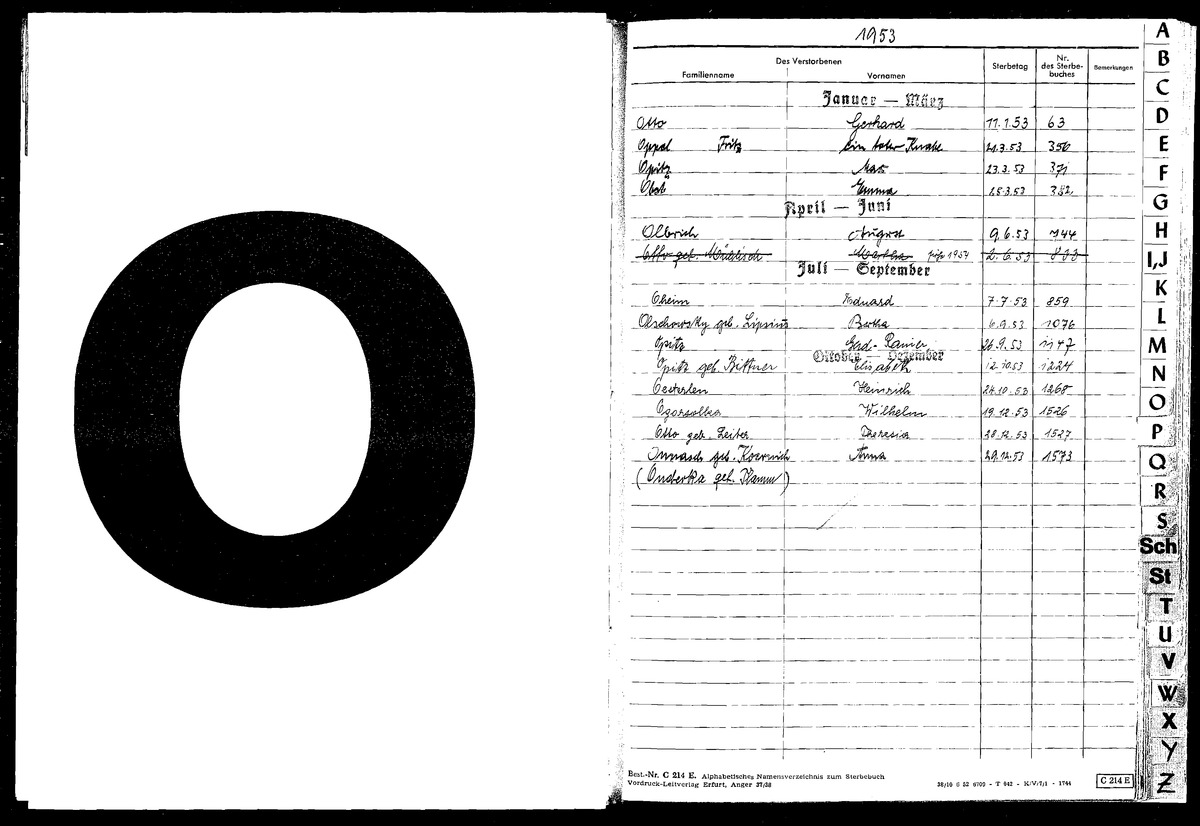 O
1953
Des Verstorbenen
Familienname Vornamen Sterbetag Nr. des Sterbebuches Bemerkungen
Januar — März
Otto Gerhard 11.1.53 63
Oppel Fritz ein toter Knabe 21.3.53 350
Opitz Max 23.3.53 371
Obst Emma 25.3.53 382
April — Juni
Olbrich August 9.6.53 744
Otto geb. Martha 1954 2.6.53 833
Juli — September
Oheim Eduard 7.7.53 859
Olschowsky geb. Lipsius Bertha 6.9.53 1076
Opitz Gerd-Rainer 26.9.53 1147
Oktober — Dezember
Opitz geb. Bittner Elisabeth 12.10.53 1224
Oesterlen Heinrich 24.10.53 1268
Wilhelm 19.12.53 1526
Otto geb. Leiter Theresia 28.12.53 1527
geb. Anna 29.12.53 1573
(Onderka geb. Hamm)
A
B
C
D
E
F
G
H
I,J
K
L
M
N
O
P
Q
R
S
Sch
St
T
U
V
W
X
Y
Z
Best.-Nr. C 214 E. Alphabetisches Namensverzeichnis zum Sterbebuch
Vordruck-Leitverlag Erfurt, Anger 37/38 38/10 6 52 6709 - T 842 - K/V/7/1 - 1744 C 214 E